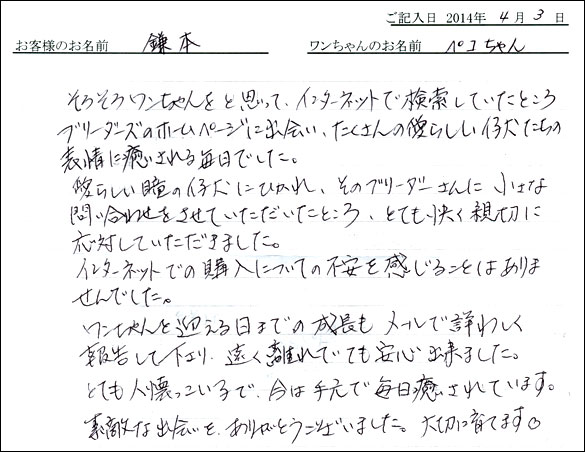 ご記入日 2014年 4月 3日
お客様のお名前 鎌本 ワンちゃんのお名前 ペコちゃん
そろそろワンちゃんをと思って、インターネットで検索していたところ
ブリーダーズのホームページに出会い、たくさんの愛らしい仔犬たちの
表情に癒される毎日でした。
愛らしい瞳の仔犬にひかれ、そのブリーダーさんに小さな
問い合わせをさせていただいたところ、とても快く親切に
応対していただきました。
インターネットでの購入についての不安を感じることはありま
せんでした。
ワンちゃんを迎える日までの成長もメールで詳わしく
報告して下さり、遠く離れてでも安心出来ました。
とても人懐っこい子で、今は手元で毎日癒されています。
素敵な出会いを、ありがとうございました。大切に育てます。